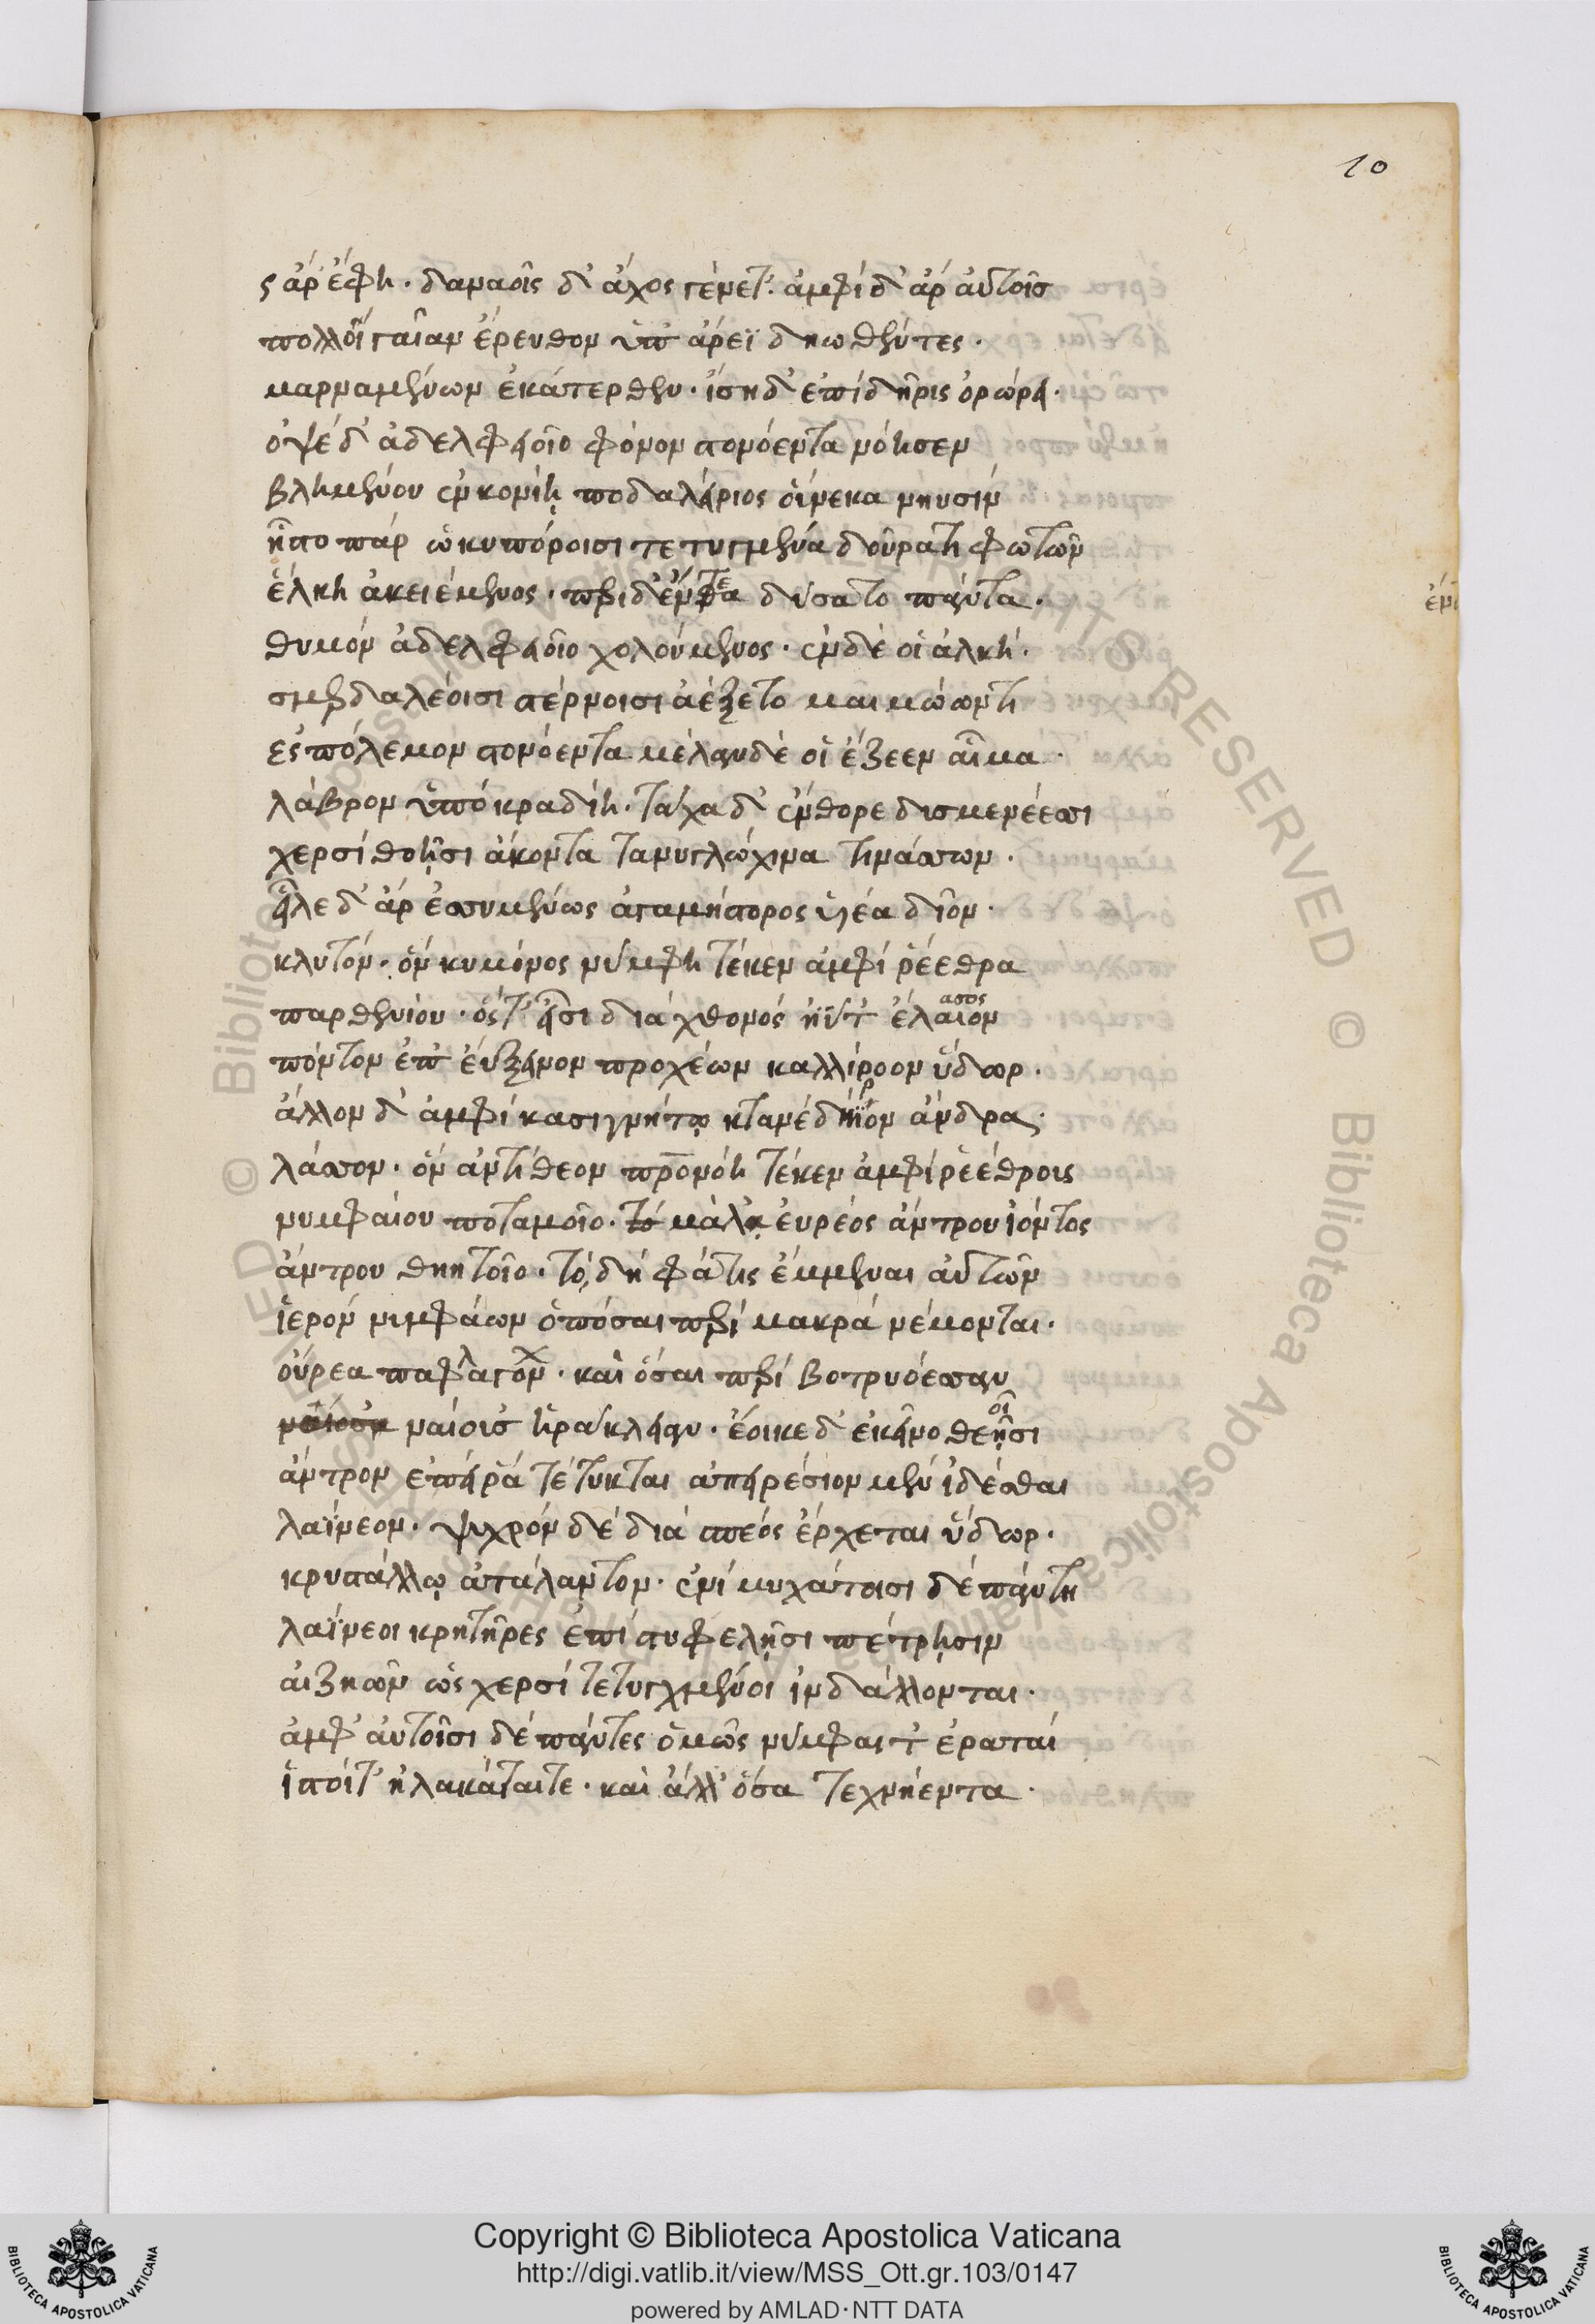 10
ς ἄρ' ἔφη· δαναοῖς δ' ἄχος γένετ'. ἀμφὶ δ' ἄρ αὐτοῖσ
πολλοὶ γαῖαν ἔρευθον ὑπ' ἄρεϊ δηωθέντες·
μαρναμένων ἑκάτερθεν· ἴση δ' ἐπὶ δῆρις ὀρώρει·
ὀψὲ δ' ἀδελφειοῖο φόνον στονόεντα νόησεν
βλημένου ἐν κονίῃ ποδαλείριος οὕνεκα νηυσὶν
ἧστο παρ' ὠκυπόροισι τετυγμένα δούρατι φωτῶν
ἕλκη ἀκειέμενος· περὶ δ' ἔντεα δύσατο πάντα·
θυμὸν ἀδελφειοῖο χολούμενος· ἐν δέ οἱ ἀλκή·
σμερδαλέοισι στέρνοισι ἀέξετο μαιμώωντι
ἐς πόλεμον στονόεντα μέλαν δέ οἱ ἔζεεν αἷμα·
λάβρον ὑπὸ κραδίη· τάχα δ' ἔνθορε δισμενέεσσι
χερσὶ θοῇσι ἄκοντα τανυγλώχινα τινάσσων·
εἷλε δ' ἄρ ἐσσυμένως ἀγαμήστορος υἱέα δῖον·
κλυτόν· ὅν κυμόνος νύμφη τέκεν ἀμφὶ ῥέεθρα
παρθενίου· ὅς τ' εἶσι διὰ χθονὸς ἠΰτ' ἔλαιον
ασσος
πόντον ἐπ' ἔυξεινον προχέων καλλίροον ὕδωρ·
ἄλλον δ' ἀμφὶ κασιγνήτῳ κτανὲ δήϊον ἄνδρας·
λάσσον· ὅν ἀντίθεον προνόη τέκεν ἀμφὶ ῥεέθροις
νυμφαίου ποταμοῖο· τό μάλα εὐρέος ἄντρου ἰόντος
ἄντρου θηητοῖο· τό, δὴ φάτις ἔμμεναι αὐτῶν
ἱερόν νιμφάων ὁπόσαι περὶ μακρὰ νέμονται·
οὔρεα παφλαγον· καὶ ὅσαι περὶ βοτρυόεσσαν
ναίοισ' ἡράκλειαν· ἔοικε δ' ἐκεῖνο θεῇσι
οῖ
ἄντρον ἐπεὶ ῥά τέτυκται ἀπειρέσιον μὲν ἰδέσθαι
λαΐνεον· ψυχρόν δὲ διὰ σπεός ἔρχεται ὕδωρ·
κρυστάλλῳ ἀτάλαντον· ἐνὶ μυχάτοισι δὲ πάντῃ
λαΐνεοι κρητῆρες ἐπὶ στυφελῇσι πέτρῃσιν
αἰζηῶν ὡς χερσί τετυγμένοι ἰνδάλλονται·
ἀμφ' αὐτοῖσι δὲ πάντες ὁμῶς νύμφαι τ' ἐραταί
ἱστοί τ' ἠλακάται τε· καὶ ἄλλ' ὅσα τεχνήεντα·
Copyright © Biblioteca Apostolica Vaticana
http://digi.vatlib.it/view/MSS_Ott.gr.103/0147
powered by AMLAD·NTT DATA